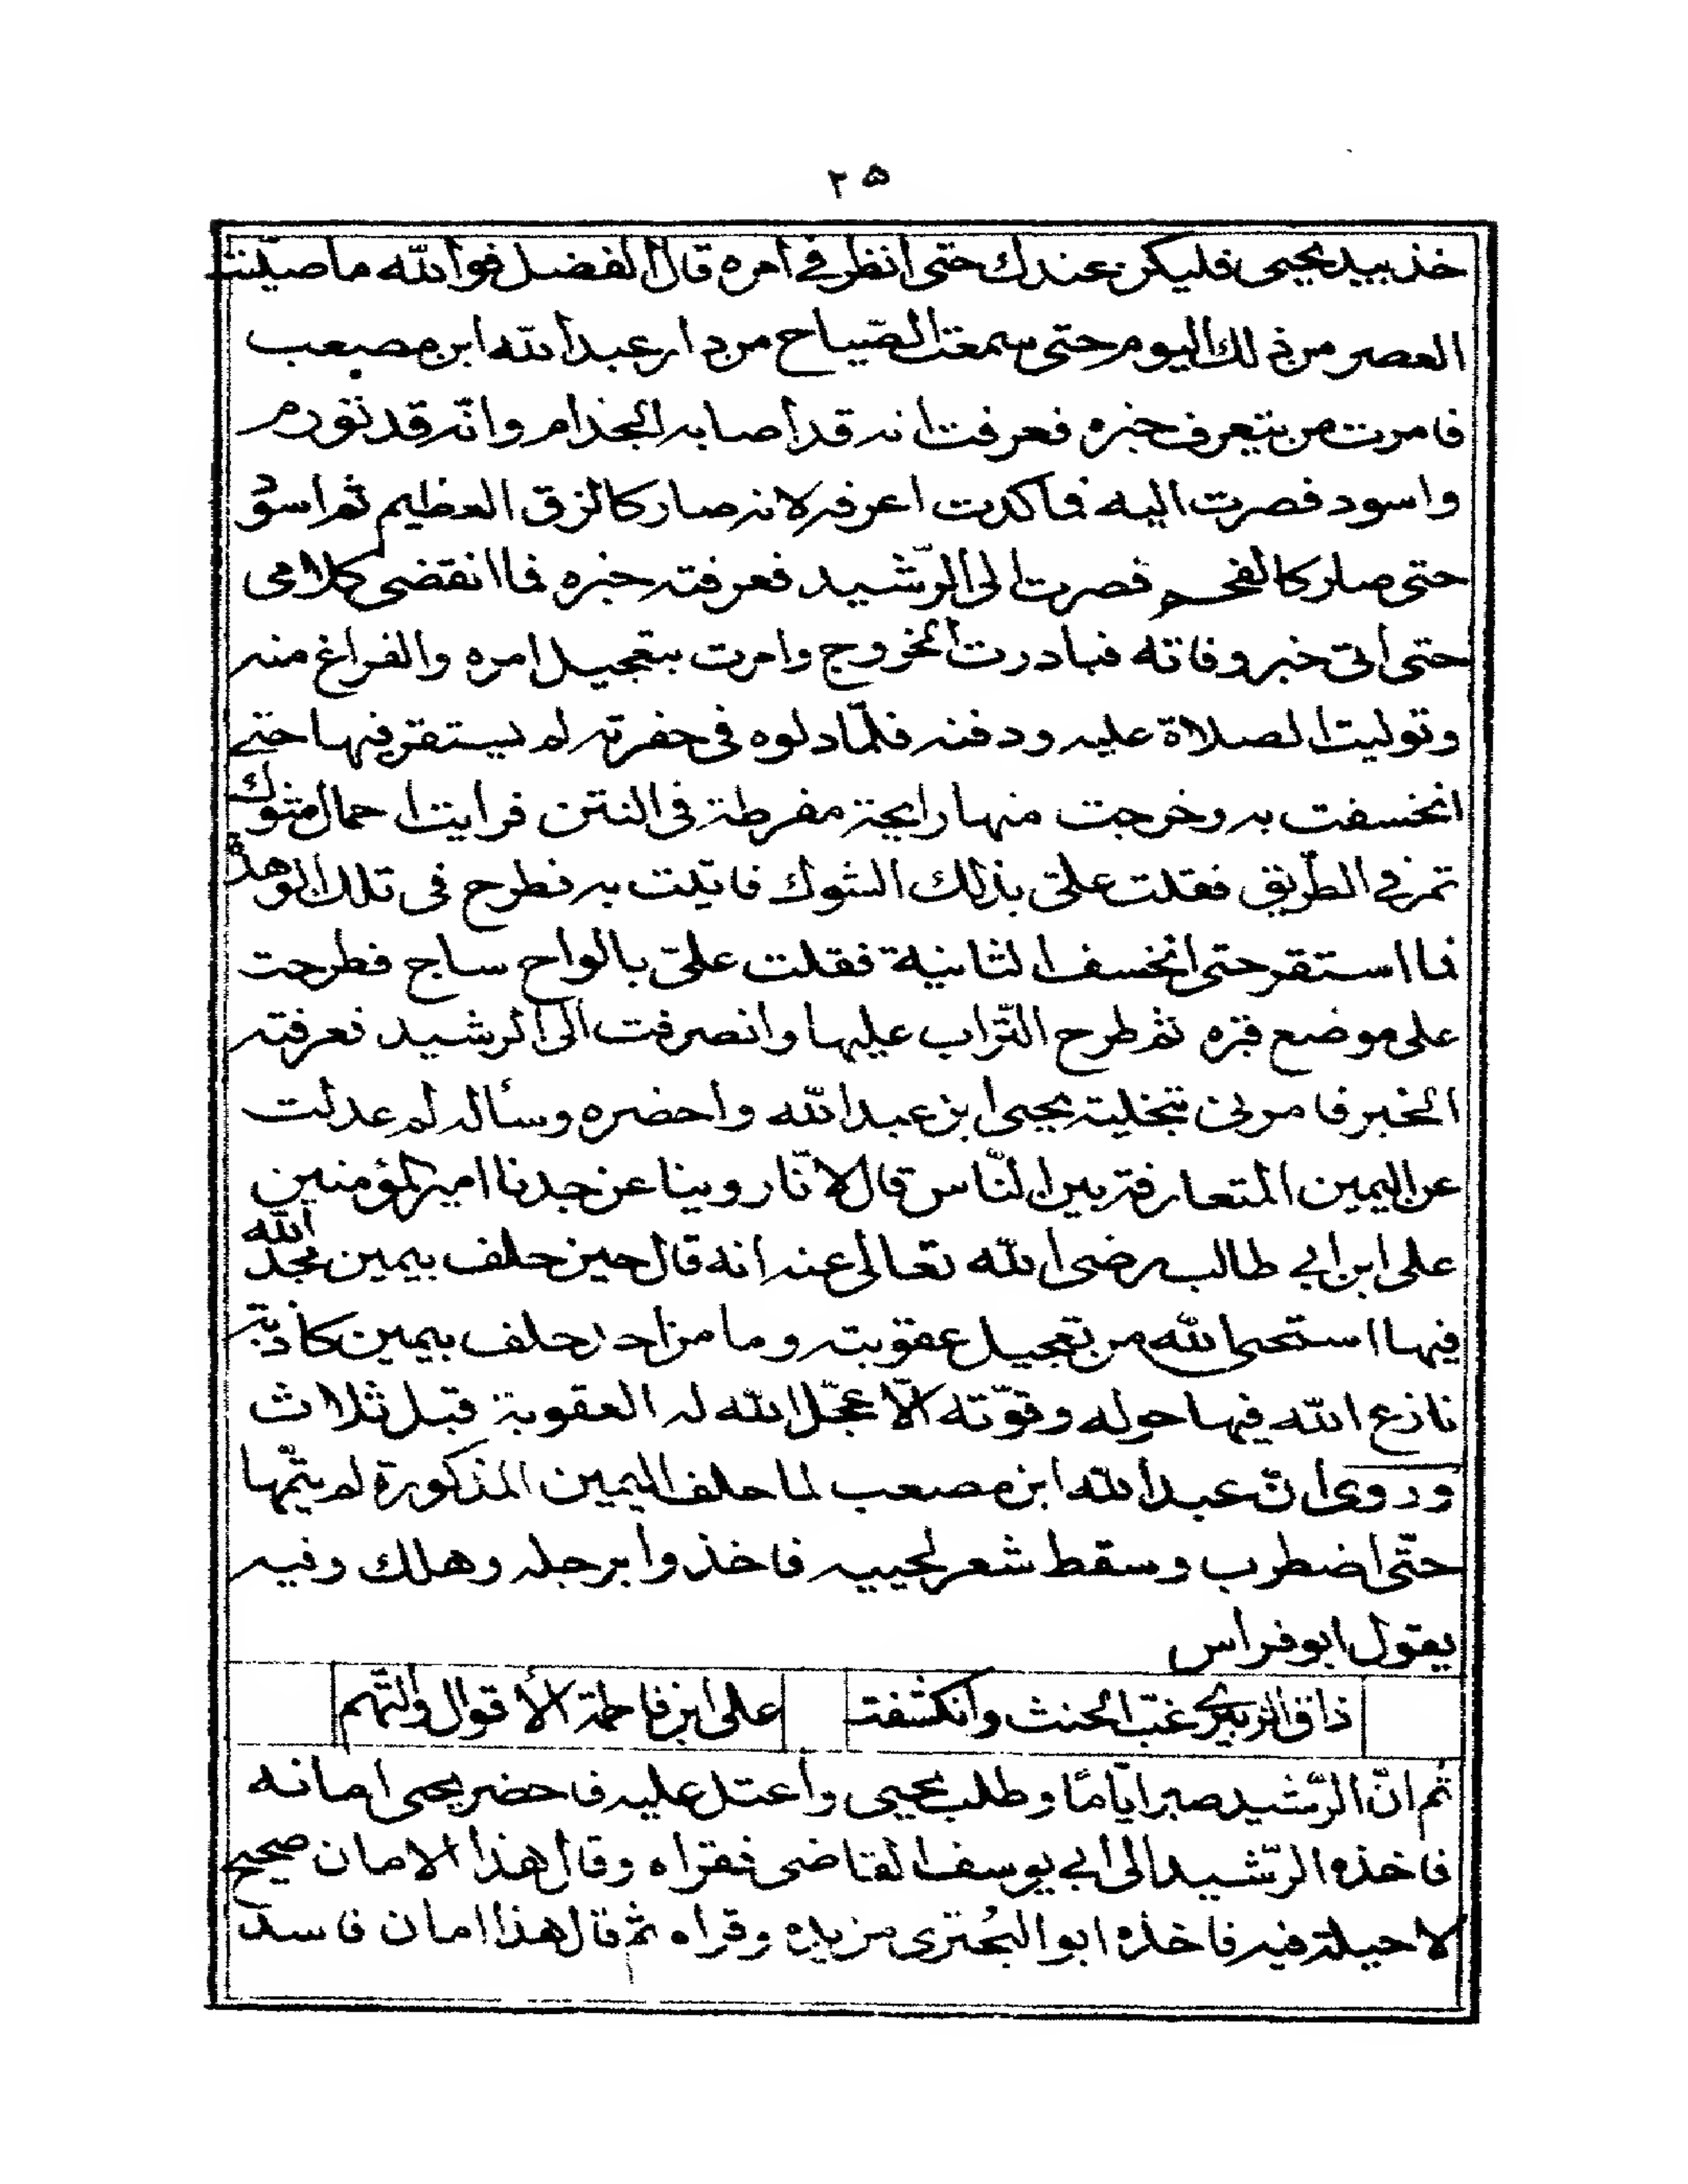 ٢٥
خذ بيد يحيى فليكن عندك حتى انظر في امره قال الفضل فوالله ما صليت
العصر من ذلك اليوم حتى سمعت الصّياح من دار عبد الله ابن مصعب
فامرت من يتعرف خبره فعرفت انه قد أصابه الجذام وانّه قد تورم
واسود فصرت اليه فما كدت اعرفه لانه صار كالزق العظيم ثم اسودّ
حتى صار كالفحم فصرت الى الرّشيد فعرفته خبره فما انقضى كلامى
حتى اتى خبر وفاته فبادرت الخروج وامرت بتعجيل امره والفراغ منه
وتوليت الصلاة عليه ودفنه فلمّا دلوه فى حفرته لم يستقر فيها حتى
انخسفت به وخرجت منها رايحة مفرطة فى النتن فرايت احمال شوك
تمر في الطّريق فقلت علىّ بذلك الشوك فاتيت به فطرح فى تلك الوهدة
فما استقر حتى انخسف الثانية فقلت علىّ بالواح ساج فطرحت
على موضع قبره ثم طرح التّراب عليها وانصرفت الى الرشيد فعرفته
الخبر فامرنى بتخلية يحيى ابن عبد الله واحضره وسأله لم عدلت
عن اليمين المتعارفة بين النّاس قال لانّا روينا عن جدنا امير المؤمنين
على ابن ابي طالب رضى الله تعالى عنه انه قال حين حلف بيمين مجد الله
فيها استحى الله من تعجيل عقوبته وما من احد حلف بيمين كاذبة
نازع الله فيها حوله وقوّته الّا عجّل الله له العقوبة قبل ثلاث
وروى انّ عبد الله ابن مصعب لما حلف اليمين المذكورة لم يتمّها
حتّى اضطرب وسقط شعر لحييه فاخذوا برجله وهلك وفيه
يقول ابو فراس
ذاق الزبيرىّ غبّ الحنث وانكشفت على ابن فاطمة الأقوال والتّهم
ثم انّ الرّشيد صبر ايّامًا وطلب يحيى واعتل عليه فاحضر يحيى امانه
فاخذه الرّشيد الى ابي يوسف القاضى فقراه وقال هذا الامان صحيح
لا حيلة فيه فاخذه ابو البُحترى من يده وقراه ثم قال هذا امان فاسد